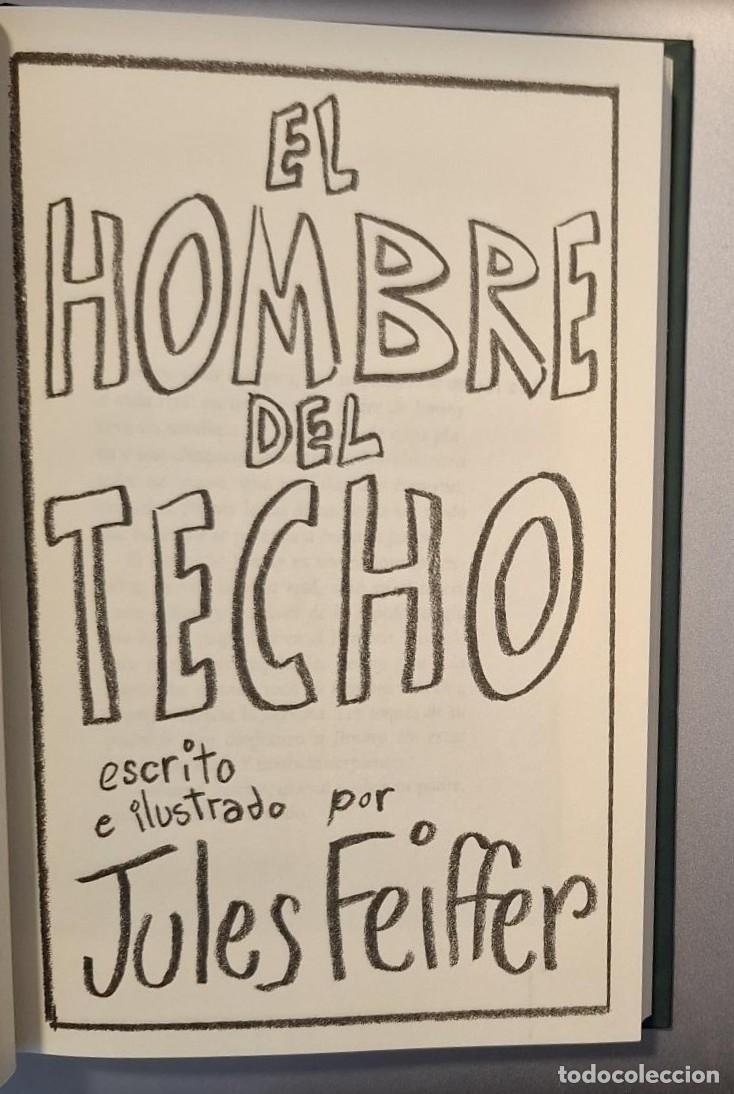 EL
HOMBRE
DEL
TECHO
escrito
e ilustrado por
Jules Feiffer
todocoleccion